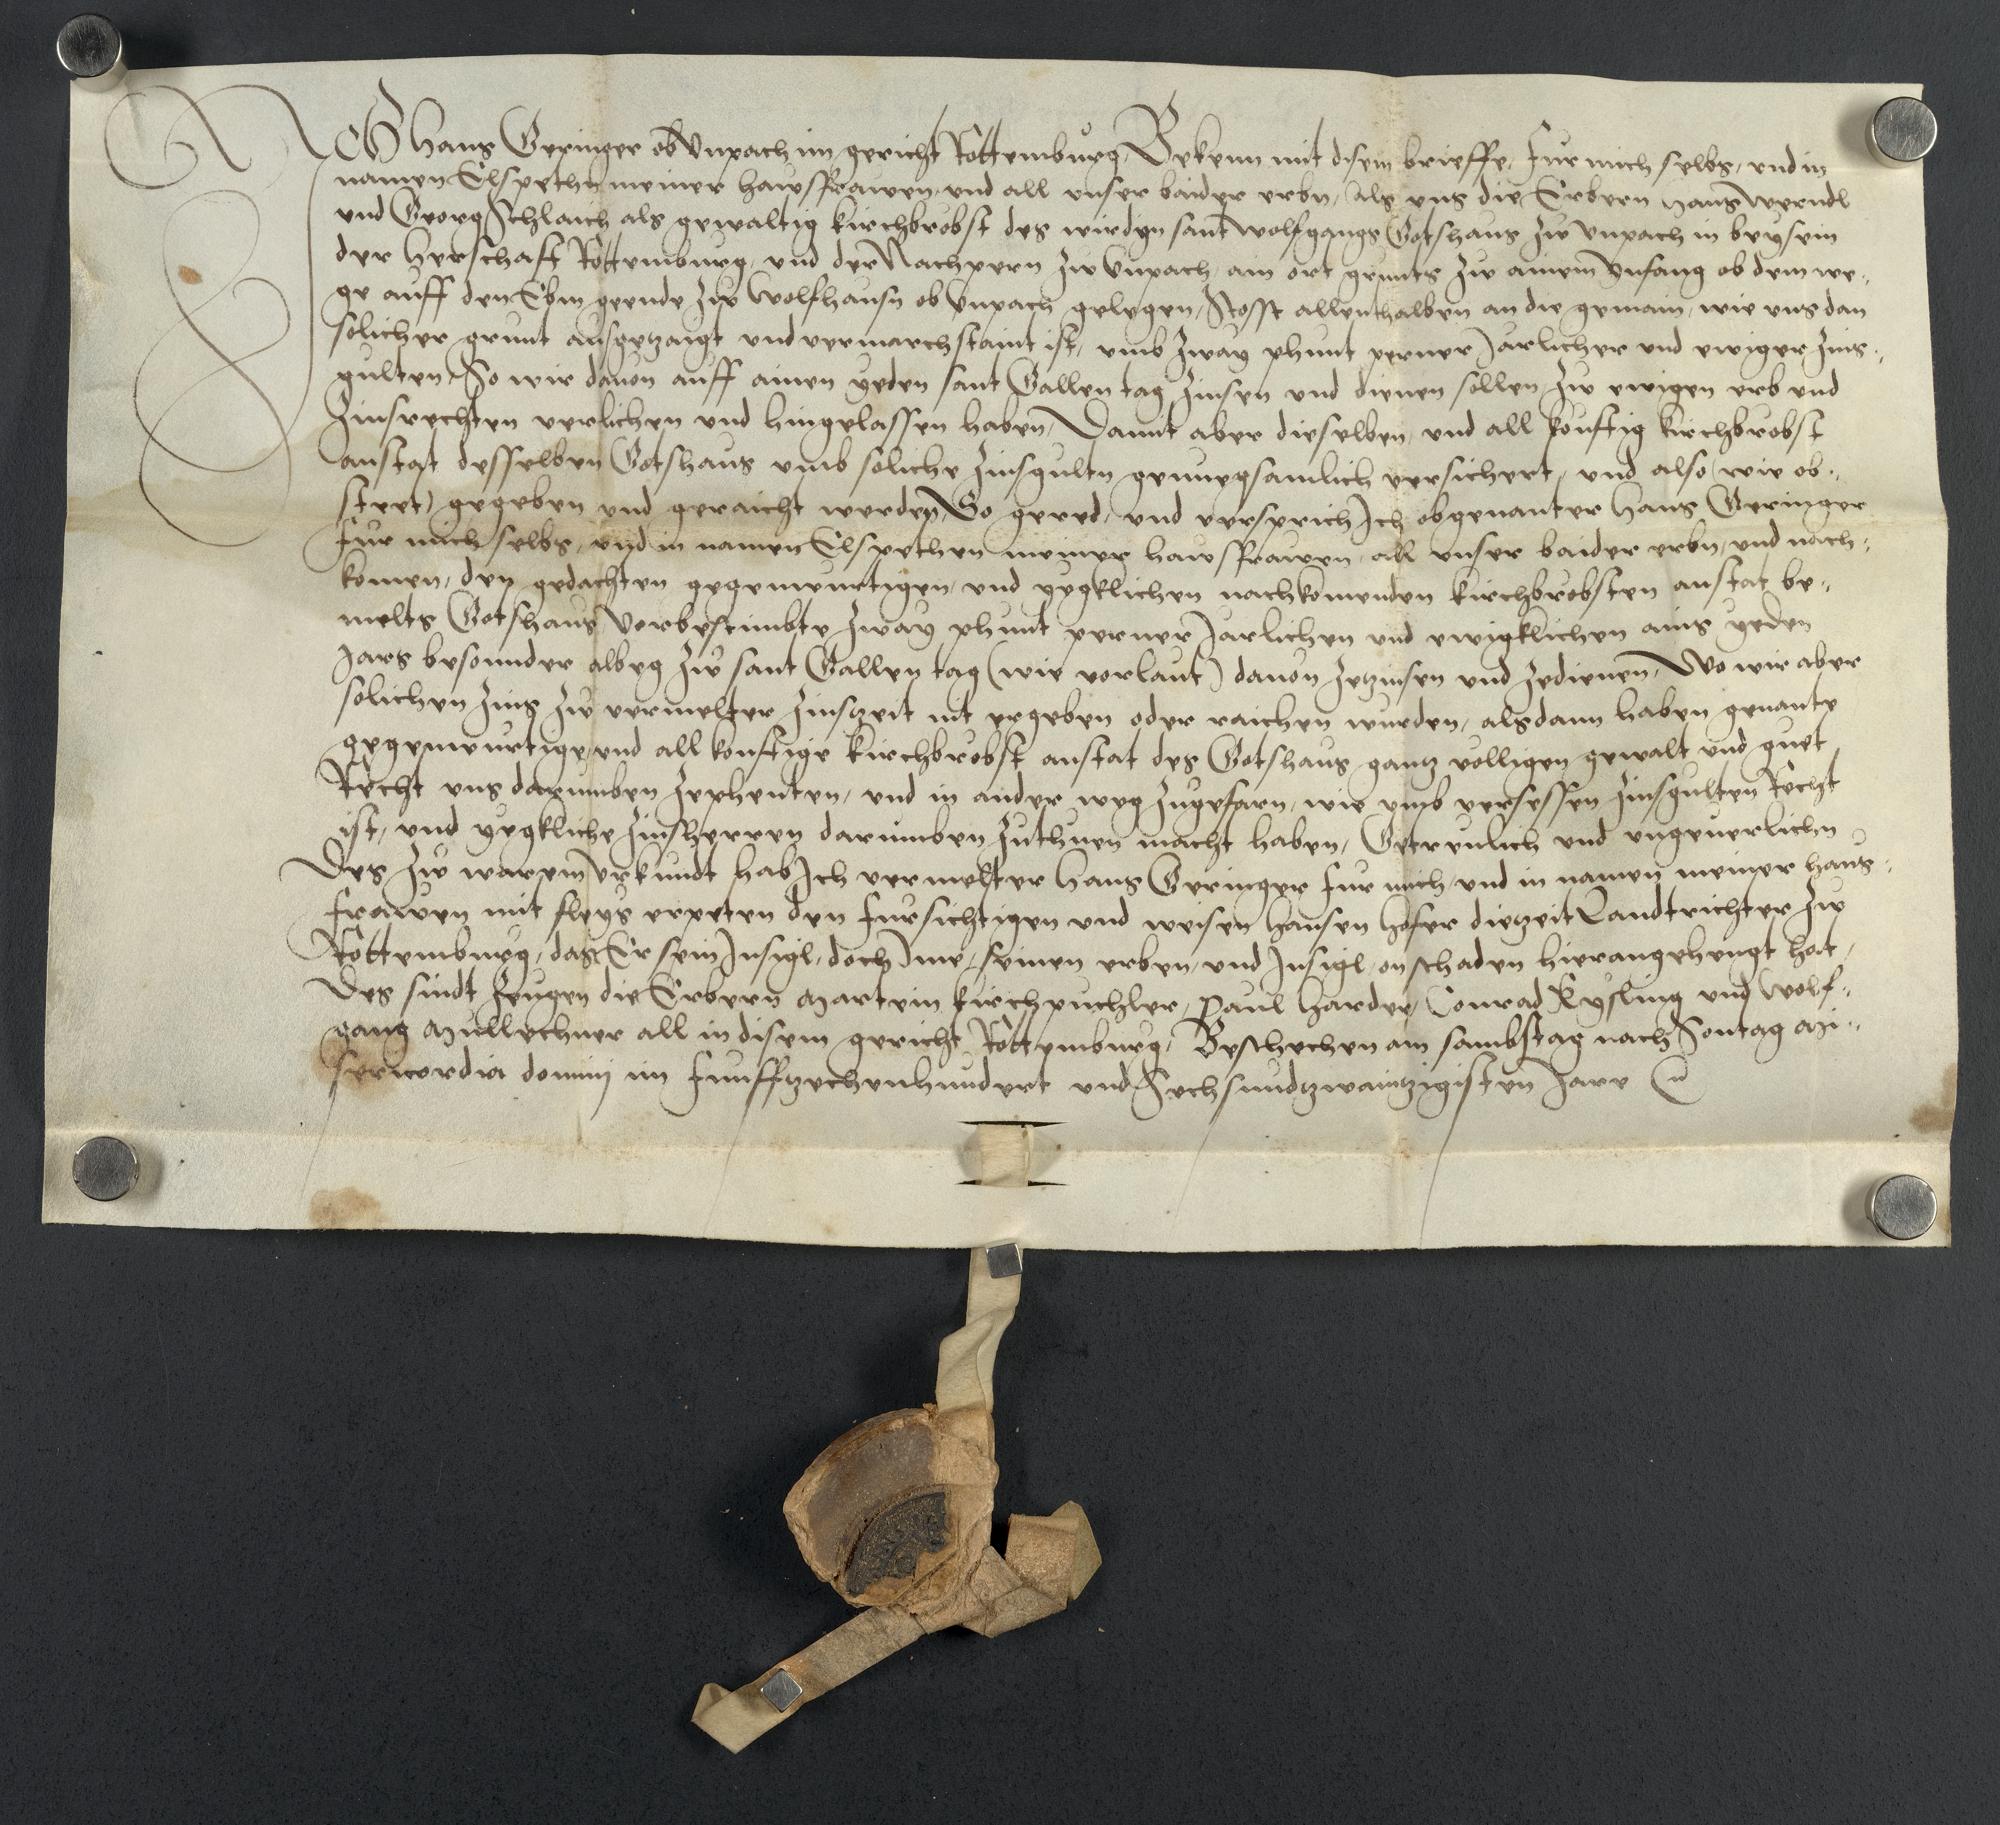 Ich Hans Geringer ob Vnpach im gericht Rottemburg, Bekenn mit disem brieffe, fur mich selbs, vnd in
namen Elspethn meiner hawsfrawen, vnd all vnser baider erbn, Als vns die Erbern Hans Werndl
vnd Georg Schlaich als gewaltig kirchbrobst des wirdign sant Wolfgangs Gotshaus zw Vnpach in beysein
der herschaft Rottemburg, vnd der Nachpern zw Vnpach, ain ort grunts zw ainem Ynfang ob dem we-
ge auff den Ebm geende zw Wolfhausn ob Vnpach gelegen, Stosst allenthalben an die gemain, wie vns dan
solicher grunt ausgetzaigt vnd vermarchstaint ist, vmb zway phunt perner Jarlicher vnd ewiger zins-
gulten, So wir dauon auff ainen yeden sant Gallen tag zinsen vnd dienen sollen, zw ewigen erb vnd
zinsrechten verlichen vnd hingelassen haben, Damit aber dieselben, vnd all konftig kirchbrobst
anstat desselben Gotshaus vmb soliche zinsgultn genuegsamlich versichert, vnd also (wie ob-
steet) gegeben vnd geraicht werden, So gered, vnd versprich Ich obgenanter Hans Geringer
fur mich selbs, vnd in namen Elspethen meiner hawsfrawen, all vnser baider erbn, vnd nach-
komen, den gedachten gegenwurtigen, vnd yegklichen nachkomenden kirchbrobsten anstat be-
melts Gotshaus, Vorbestimbte zway phunt perner Jarlichen vnd ewigklichen ains yeden
Jars besonnder albeg zw sant Gallen tag (wie vorlaut) dauon zetzinsen vnd zedienen, Wo wir aber
solichen zins zw vermelter zinszeit nit ergeben oder raichen wurden, alsdann haben genante
gegenwurtige, vnd all konftige kirchbrobst anstat des Gotshaus gantz volligen gewalt vnd guet
Recht vns darumben zephenten, vnd in ander weg zugefarn, wie vmb versessen zinsgulten Recht
ist, vnd yegkliche zinsherren darumben zuthuen macht haben, Getreulich vnd vngeuerlichn
Des zw warem Vrkundt hab Ich vermelter Hans Geringer fur mich, vnd in namen meiner haus-
frawen mit fleys erpeten den fursichtigen vnd weisen Hansen Hofer dietzeit Landtrichter zw
Rottemburg, das Er sein Insigl, doch Ime, seinen erben, vnd Insigl, on schaden hierangehengt hat,
Des sindt zeugen die Erbern Martein kirchpuchler, Paul Harder, Conrad Kysling vnd Wolf-
gang Mullechner all in disem gericht Rottemburg, Beschechen am sambstag nach Sontag Mi-
sericordia domini im funfftzechenhundert vnd Sechsundtzwaintzigisten Jare